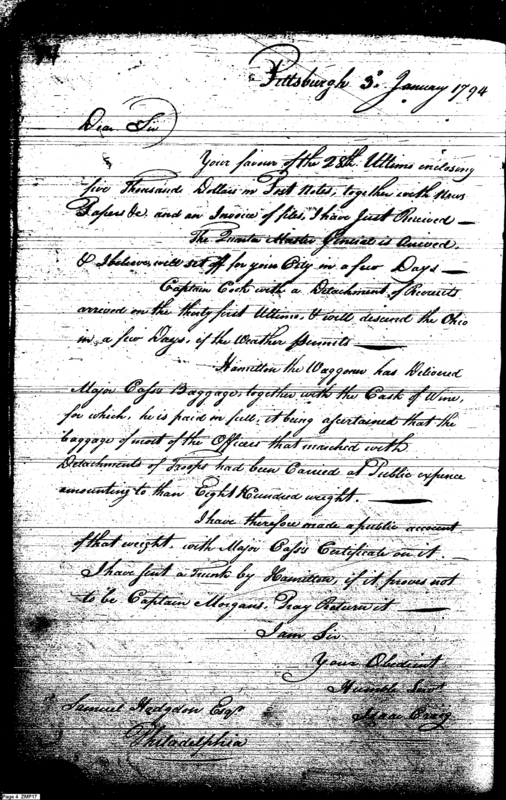 Pittsburgh 3d. January 1794
Dear Sir
Your favour of the 28th. Ultimo inclosing
five Thousand Dollars in Post Notes, together with News
Papers &c. and an Invoice of files, I have Just Received —
The Quarter Master General is Arrived,
& I believe will set off for your City in a few Days —
Captain Cook with a Detachment of Recruits
arrived on the thirty first Ultimo, & will descend the Ohio
in a few Days, if the Weather permits —
Hamilton the Waggoner has Delivered
Major Cass's Baggage, together with the Cask of Wine,
for which, he is paid in full, it being ascertained that the
baggage of most of the Officers that marched with
Detachments of Troops had been Carried at Public expence
amounting to than Eight Hundred weight —
I have therefore made a public account
of that weight, with Major Cass's Certificate on it —
I have sent a Trunk by Hamilton, if it proves not
to be Captain Morgans, Pray Return it —
I am Sir
Your Obedient
Humble Servt
Isaac Craig
Samuel Hodgdon Esqr.
Philadelphia
Page 4 ZMP17